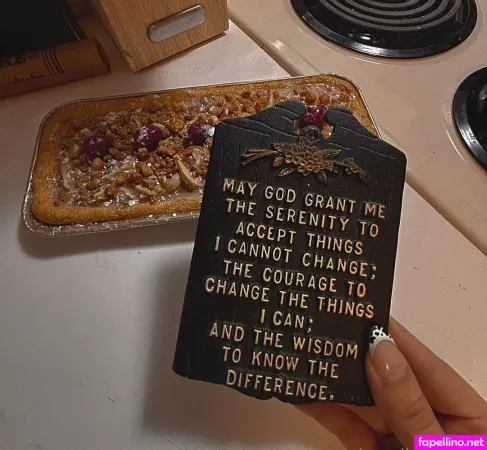 MAY GOD GRANT ME
THE SERENITY TO
ACCEPT THINGS
I CANNOT CHANGE;
THE COURAGE TO
CHANGE THE THINGS
I CAN;
AND THE WISDOM
TO KNOW THE
DIFFERENCE.
fapellino.net